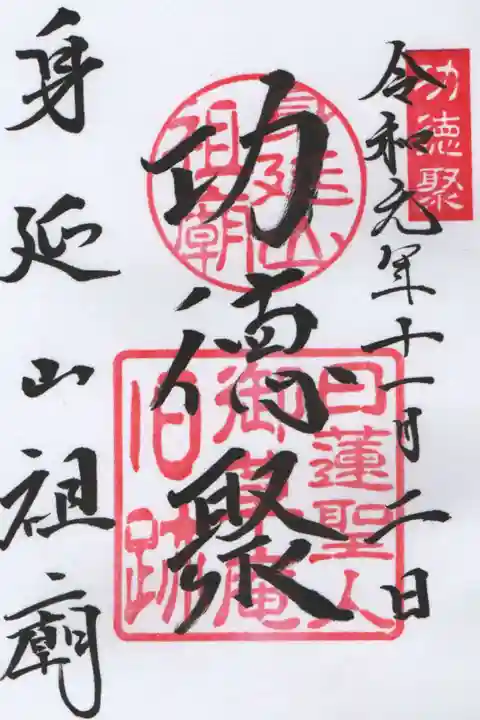 功徳聚
令和元年十一月二日
功徳聚
身延山
祖廟
日蓮聖人
御草庵
旧跡
身延山祖廟